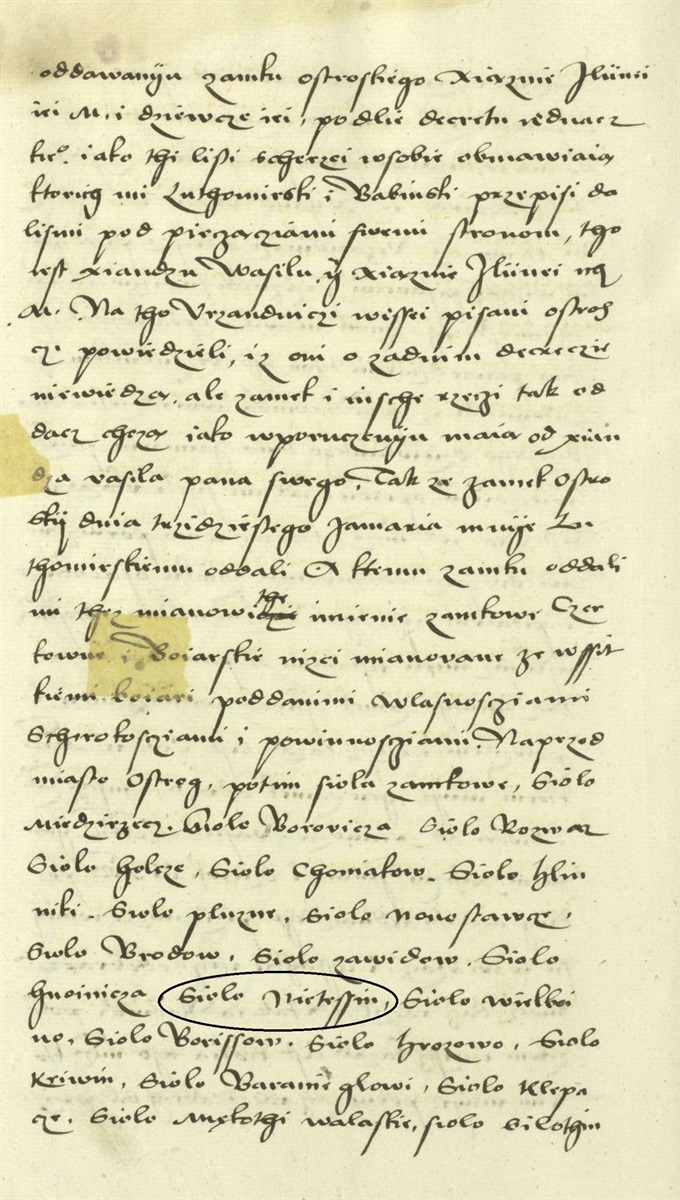 oddawanyu zamku ostroskiego Xięznie Ilinei
iei M. i dziewcze iei, podlie decretu iednacz
kieº. iako thi listi scherzei wsobie obmawiaią
ktorich mi Luthomirski i Babinski przepisi da
lismi pod pieczarziami swemi stronom, tho
iest xiandzu Wasilu, y Xięznie Ilinei ich
M. Na tho Vrzandniczi wissei pisani ostroh
czi powiedzieli, iz oni o zadnim decreczie
niewiedzą, ale zamek i insche rzeczi tak od
dacz chczą iako wporuczenyu maią od xian
dza vasila pana swego, Tak ze zamek Ostro
skij dnia trzidziestego januaria mnije Lu
thomirskiemu oddali A ktemu zamku oddali
mi thez mianowithe imienie zamkowe Czer
kowne i Boiarskie nizei mianovane ze wssit
kiemi boiari poddanimi wlasnosciami
Scherokosciami i powinnosciami. Naprzod
miasto Ostrog, potim siola zamkowe, Siolo
Miedzirzecz. Siolo Borovicza Siolo Rozwaz
Siolo holcze, Siolo Choniakow. Siolo hlin
niki. Siolo pluzne, Siolo Novostawcze,
Siolo Brodow, Siolo zawidow. Siolo
hnoinicza Siolo Nietessin, Siolo wielboi
no, Siolo Borissow. Siolo hrozowo, Siolo
Kriwin, Siolo Baranie glowi, Siolo Klepa
cze. Siolo Mękothi walaskie, siolo Silothin